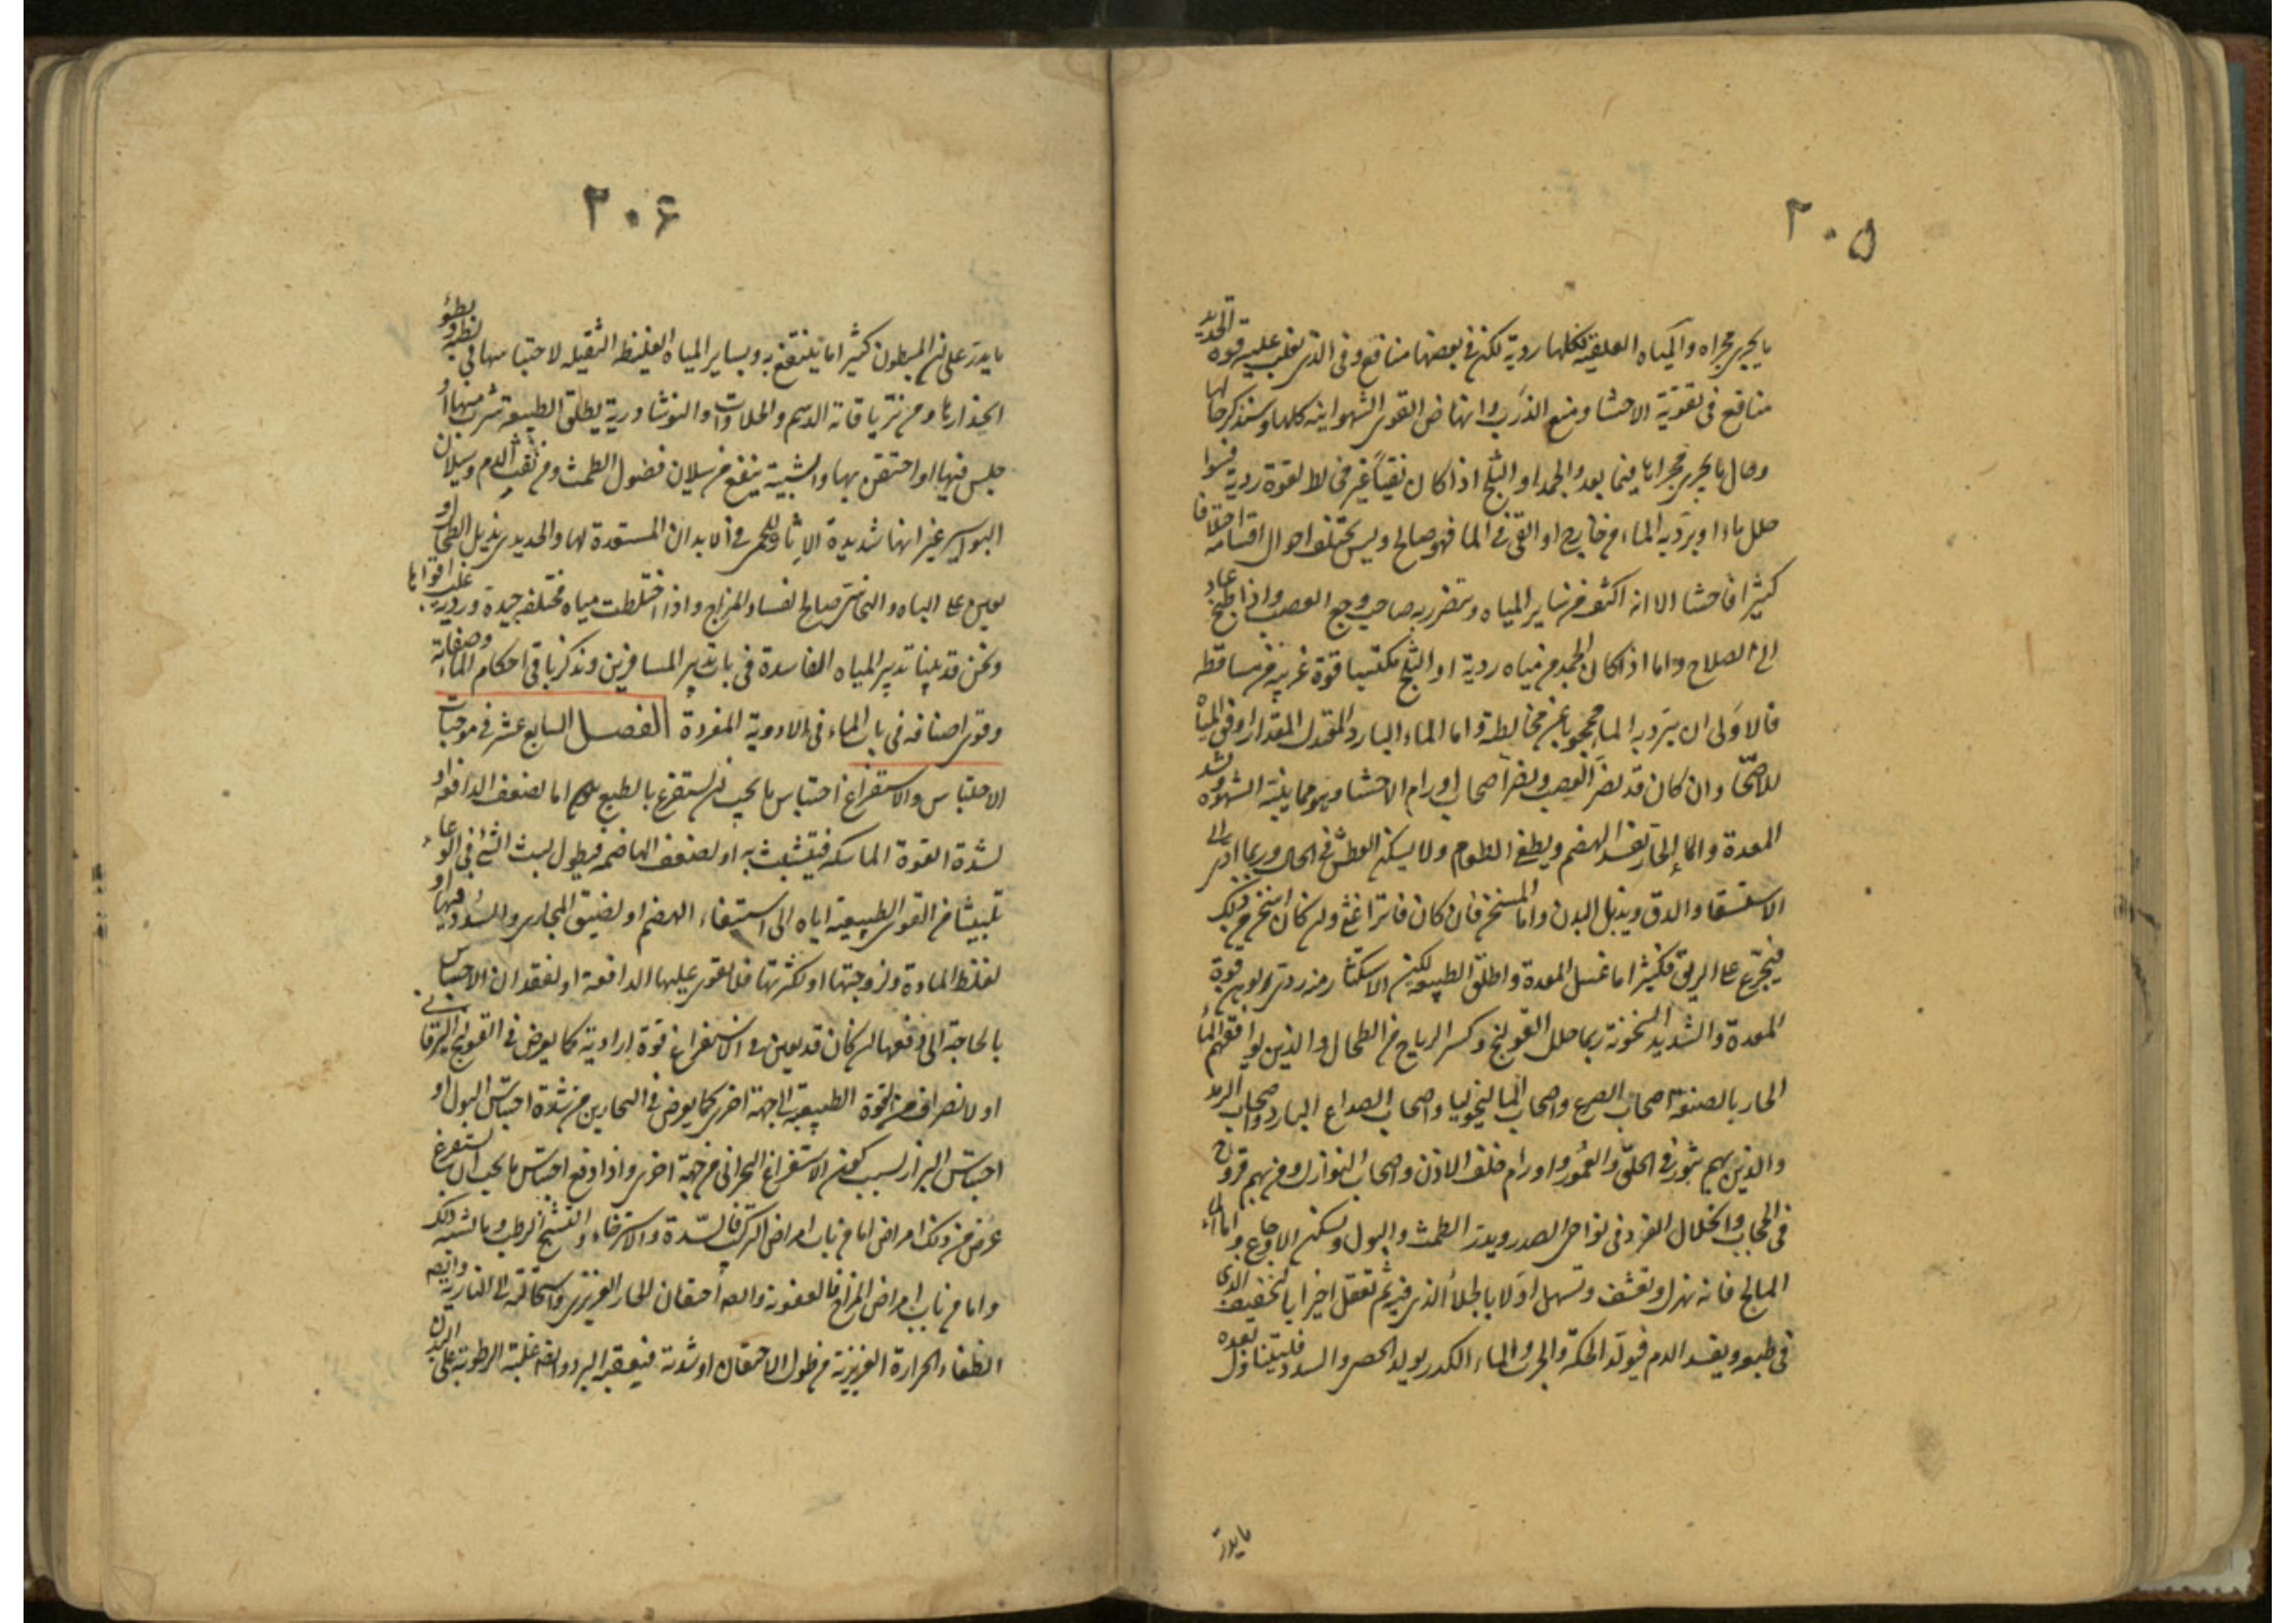 ٢٠٥
ما يجرى مجراه والمياه العلقية فكلها ردية لكن فى بعضها منافع وفى الذى تغلب عليه قوة الحديد
منافع فى تقوية الاحشا ومنع الذرب وانهاض القوى الشهوانية كلها وسنذكر حالها
وحال ما يجرى مجراها فيما بعد والجمد او الثلج اذا كان نقيا غير مخالط لقوة ردية فسوا
حلل ماء او برد به الماء من خارج او القى فى الما فهو صالح وليس يختلف احوال اقسامه اختلافا
كثيرا فاحشا الا انه اكثف من ساير المياه ويتضرر به صاحب وجع العصب واذا طبخ عاد
الى الصلاح واما اذا كان الجمد من مياه ردية او الثلج مكتسبا قوة غريبة من مساقطه
فالاولى ان يبرد به الماء محجوبا عن مخالطة واما الماء البارد المعتدل المقدار اوفق المياه
للاصحا وان كان قد يضر العصب ويضر اصحاب اورام الاحشا وهو مما ينبه الشهوة ويشد
المعدة والما الحار يفسد الهضم ويطفى الطعام ولا يسكن العطش فى الحال وربما ادى الى
الاستسقا والدق ويذبل البدن واما المسخن فان كان فاترا غثى وان كان اسخن من ذلك
فتجرع على الريق فكثيرا ما غسل المعدة واطلق الطبيعة لكن الاستكثار منه ردى يوهن قوة
المعدة والشديد السخونة ربما حلل القولنج وكسر الرياح من الطحال والذين يوافقهم الماء
الحار بالصنعة اصحاب الصرع واصحاب الماليخوليا واصحاب الصداع البارد واصحاب الرمد
والذين بهم بثور فى الحلق والعمور واورام خلف الاذن واصحاب النوازل ومن بهم قروح
فى الحجاب وانحلال الفرد فى نواحى الصدر ويدر الطمث والبول ويسكن الاوجاع واما الماء
المالح فانه يهزل وينشف ويسهل اولا بالجلاء الذى فيه ثم تعقل اخرا بالتجفيف الذى
فى طبعه ويفسد الدم فيولد الحكة والجرب والماء الكدر يولد الحصى والسدد فليتناول بعده
ما يدر
٢٠۶
ما يدر على ان المبطون كثيرا ما ينتفع به وبساير المياه الغليظه الثقيله لاحتباسها فى بطنه وبطؤ
انحدارها ومن ترياقاته الدسم والحلاوات والنوشادرية يطلق الطبيعة شرب منها او
جلس فيها او احتقن بها والشبية ينفع من سيلان فضول الطمث ومن نفث الدم وسيلان
البواسير غير انها شديدة الاثارة للحمى فى الابدان المستعدة لها والحديدى يزيل الطحال و
يعين على الباه والنحاسى صالح لفساد المزاج واذا اختلطت مياه مختلفه جيدة وردية غلب اقواها
ونحن قد بينا تدبير المياه الفاسدة فى باب تدبير المسافرين ونذكر باقى احكام الماء وصفاته
وقوى اصنافه فى باب الماء فى الادوية المفردة الفصل السابع عشر فى موجبات
الاحتباس والاستفراغ احتباس ما يجب ان يستفرغ بالطبع يكون اما لضعف الدافعه او
لشدة القوة الماسكه فيتشبث به او لضعف الهاضمه فيطول لبث الشئ فى الوعاء
تلبيثا من القوى الطبيعية اياه الى استيفاء الهضم او لضيق المجارى والسدد فيها او
لغلظ المادة ولزوجتها او لكثرتها فلا تقوى عليها الدافعة او لفقدان الاحساس
بالحاجة الى دفعها ان كان قد يعين فى الاستفراغ قوة ارادية كما يعرض فى القولنج اليرقانى
او لانصراف من القوة الطبيعية الى جهة اخرى كما يعرض فى البحارين من شدة احتباس البول او
احتباس البراز بسبب كون الاستفراغ البحرانى من جهة اخرى واذا وقع احتباس ما يجب ان يستفرغ
عرض من ذلك امراض اما من باب امراض التركيب فالسدة والاسترخاء والتشنج الرطب وما يشبه ذلك
واما من باب امراض المزاج فالعفونة وايضا احتقان الحار الغريزى واستحالته الى النارية وايضا
انطفاء الحرارة الغريزية من طول الاحتقان او شدته فيعقبه البرد وايضا غلبة الرطوبة على البدن